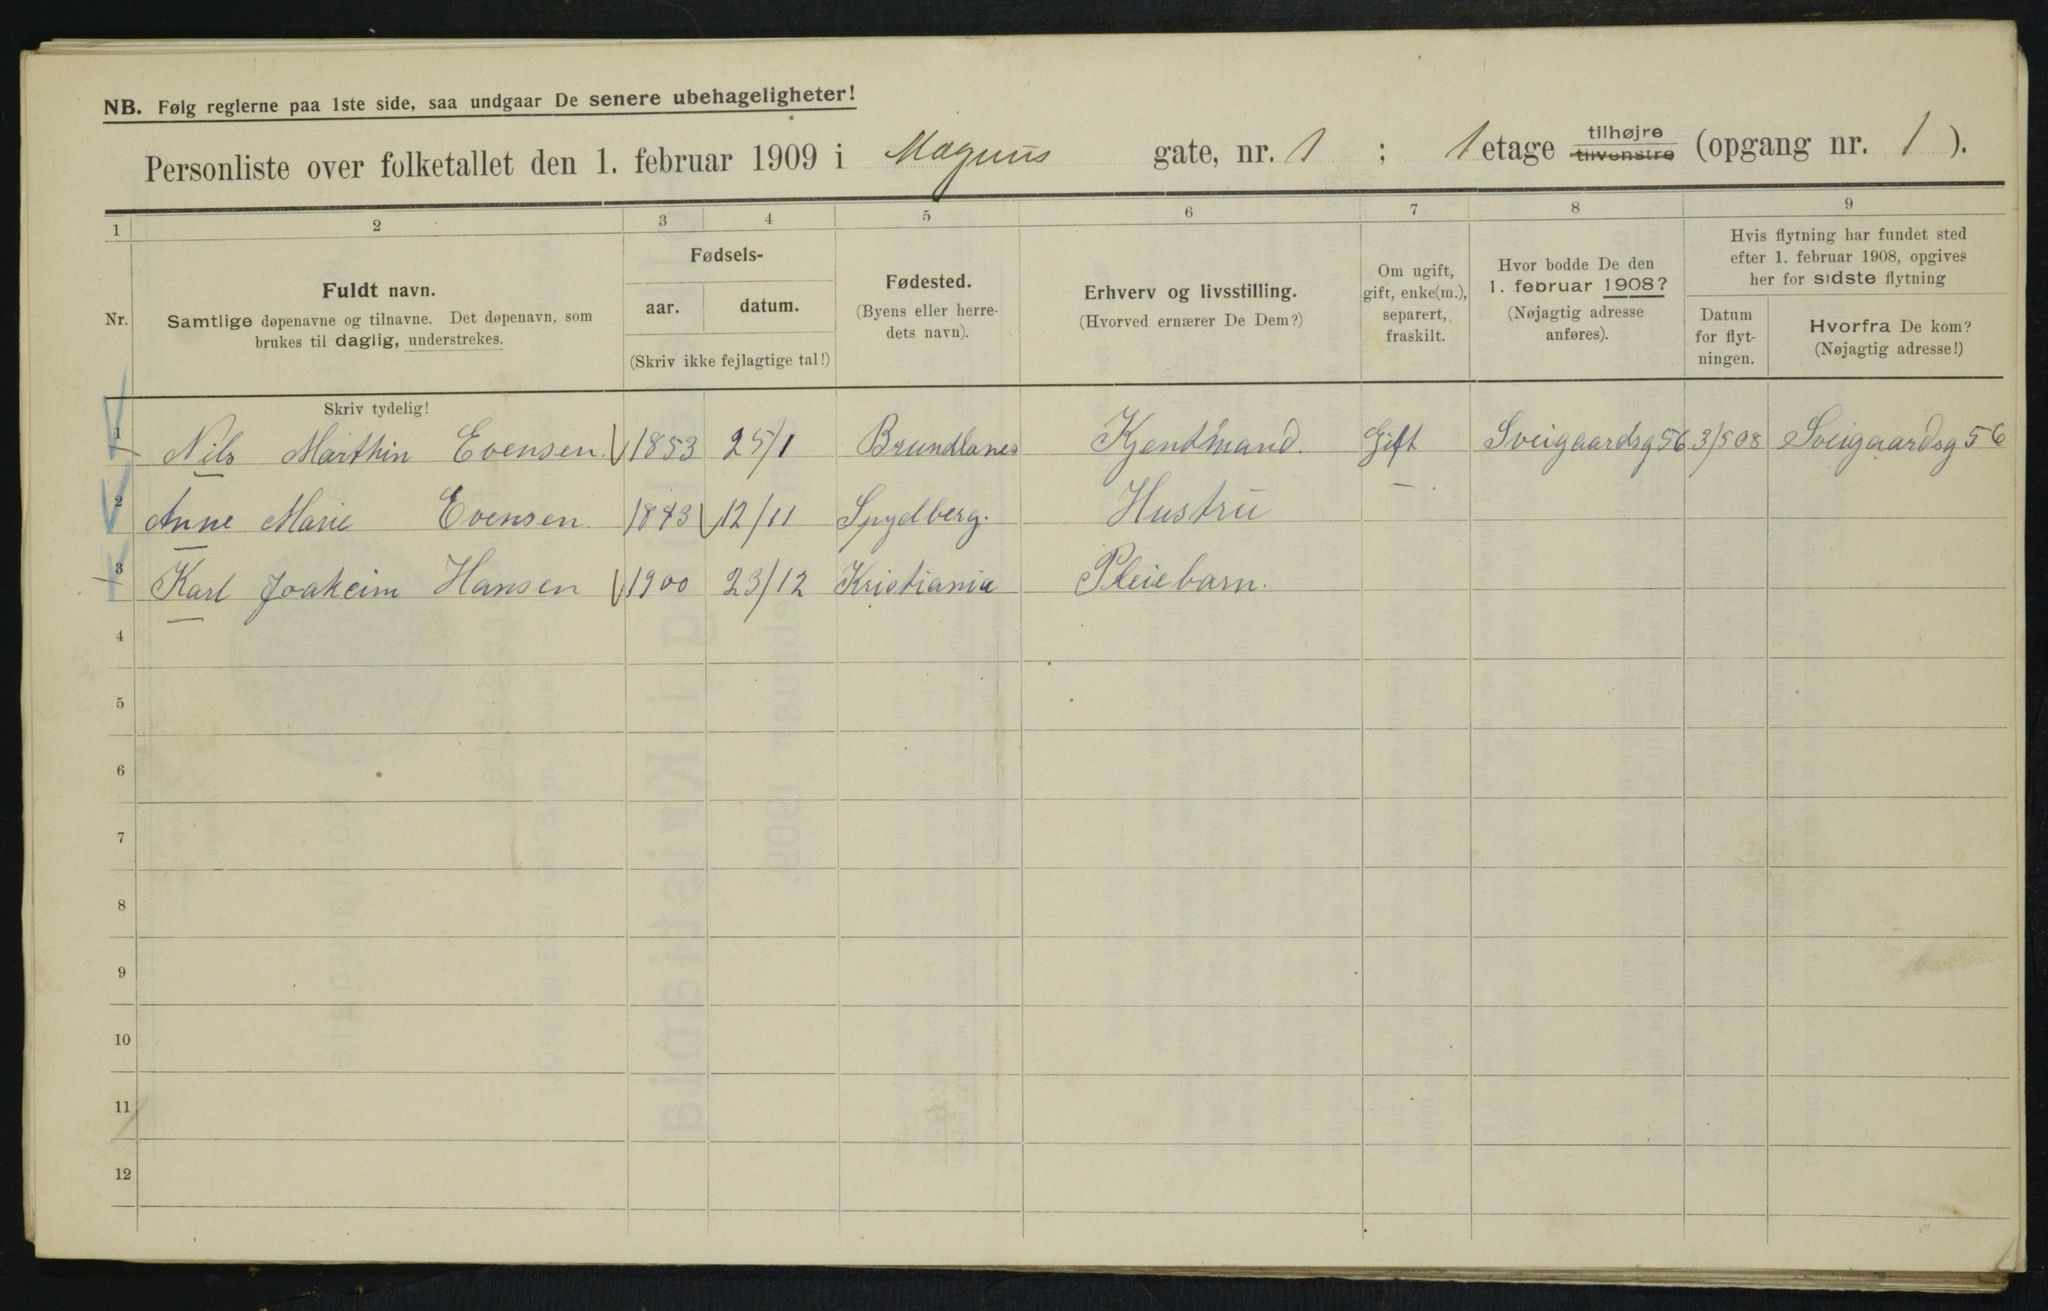 NB. Følg reglerne paa 1ste side, saa undgaar De senere ubehageligheter!
Personliste over folketallet den 1. februar 1909 i Magnus gate, nr. 1 ; 1 etage tilhøjre tilvenstre (opgang nr. 1 ).
1 2 3 4 5 6 7 8 9
Nr.
Fuldt navn.
Samtlige døpenavne og tilnavne. Det døpenavn, som
brukes til daglig, understrekes.
Fødsels-
aar. datum.
(Skriv ikke fejlagtige tal!)
Fødested.
(Byens eller herre-
dets navn).
Erhverv og livsstilling.
(Hvorved ernærer De Dem?)
Om ugift,
gift, enke(m.),
separert,
fraskilt.
Hvor bodde De den
1. februar 1908?
(Nøjagtig adresse
anføres).
Hvis flytning har fundet sted
efter 1. februar 1908, opgives
her for sidste flytning
Datum
for flyt-
ningen.
Hvorfra De kom?
(Nøjagtig adresse!)
Skriv tydelig!
1 Nils Marthin Evensen. 1853 25/1 Brundlanes Kjentmand. Gift Sveigaardsg 56 3/5 08 Sveigaardsg 56
2 Anne Marie Evensen. 1843 12/11 Spydberg. Hustru —
3 Karl Joakeim Hansen 1900 23/12 Kristiania Pleiebarn.
4
5
6
7
8
9
10
11
12